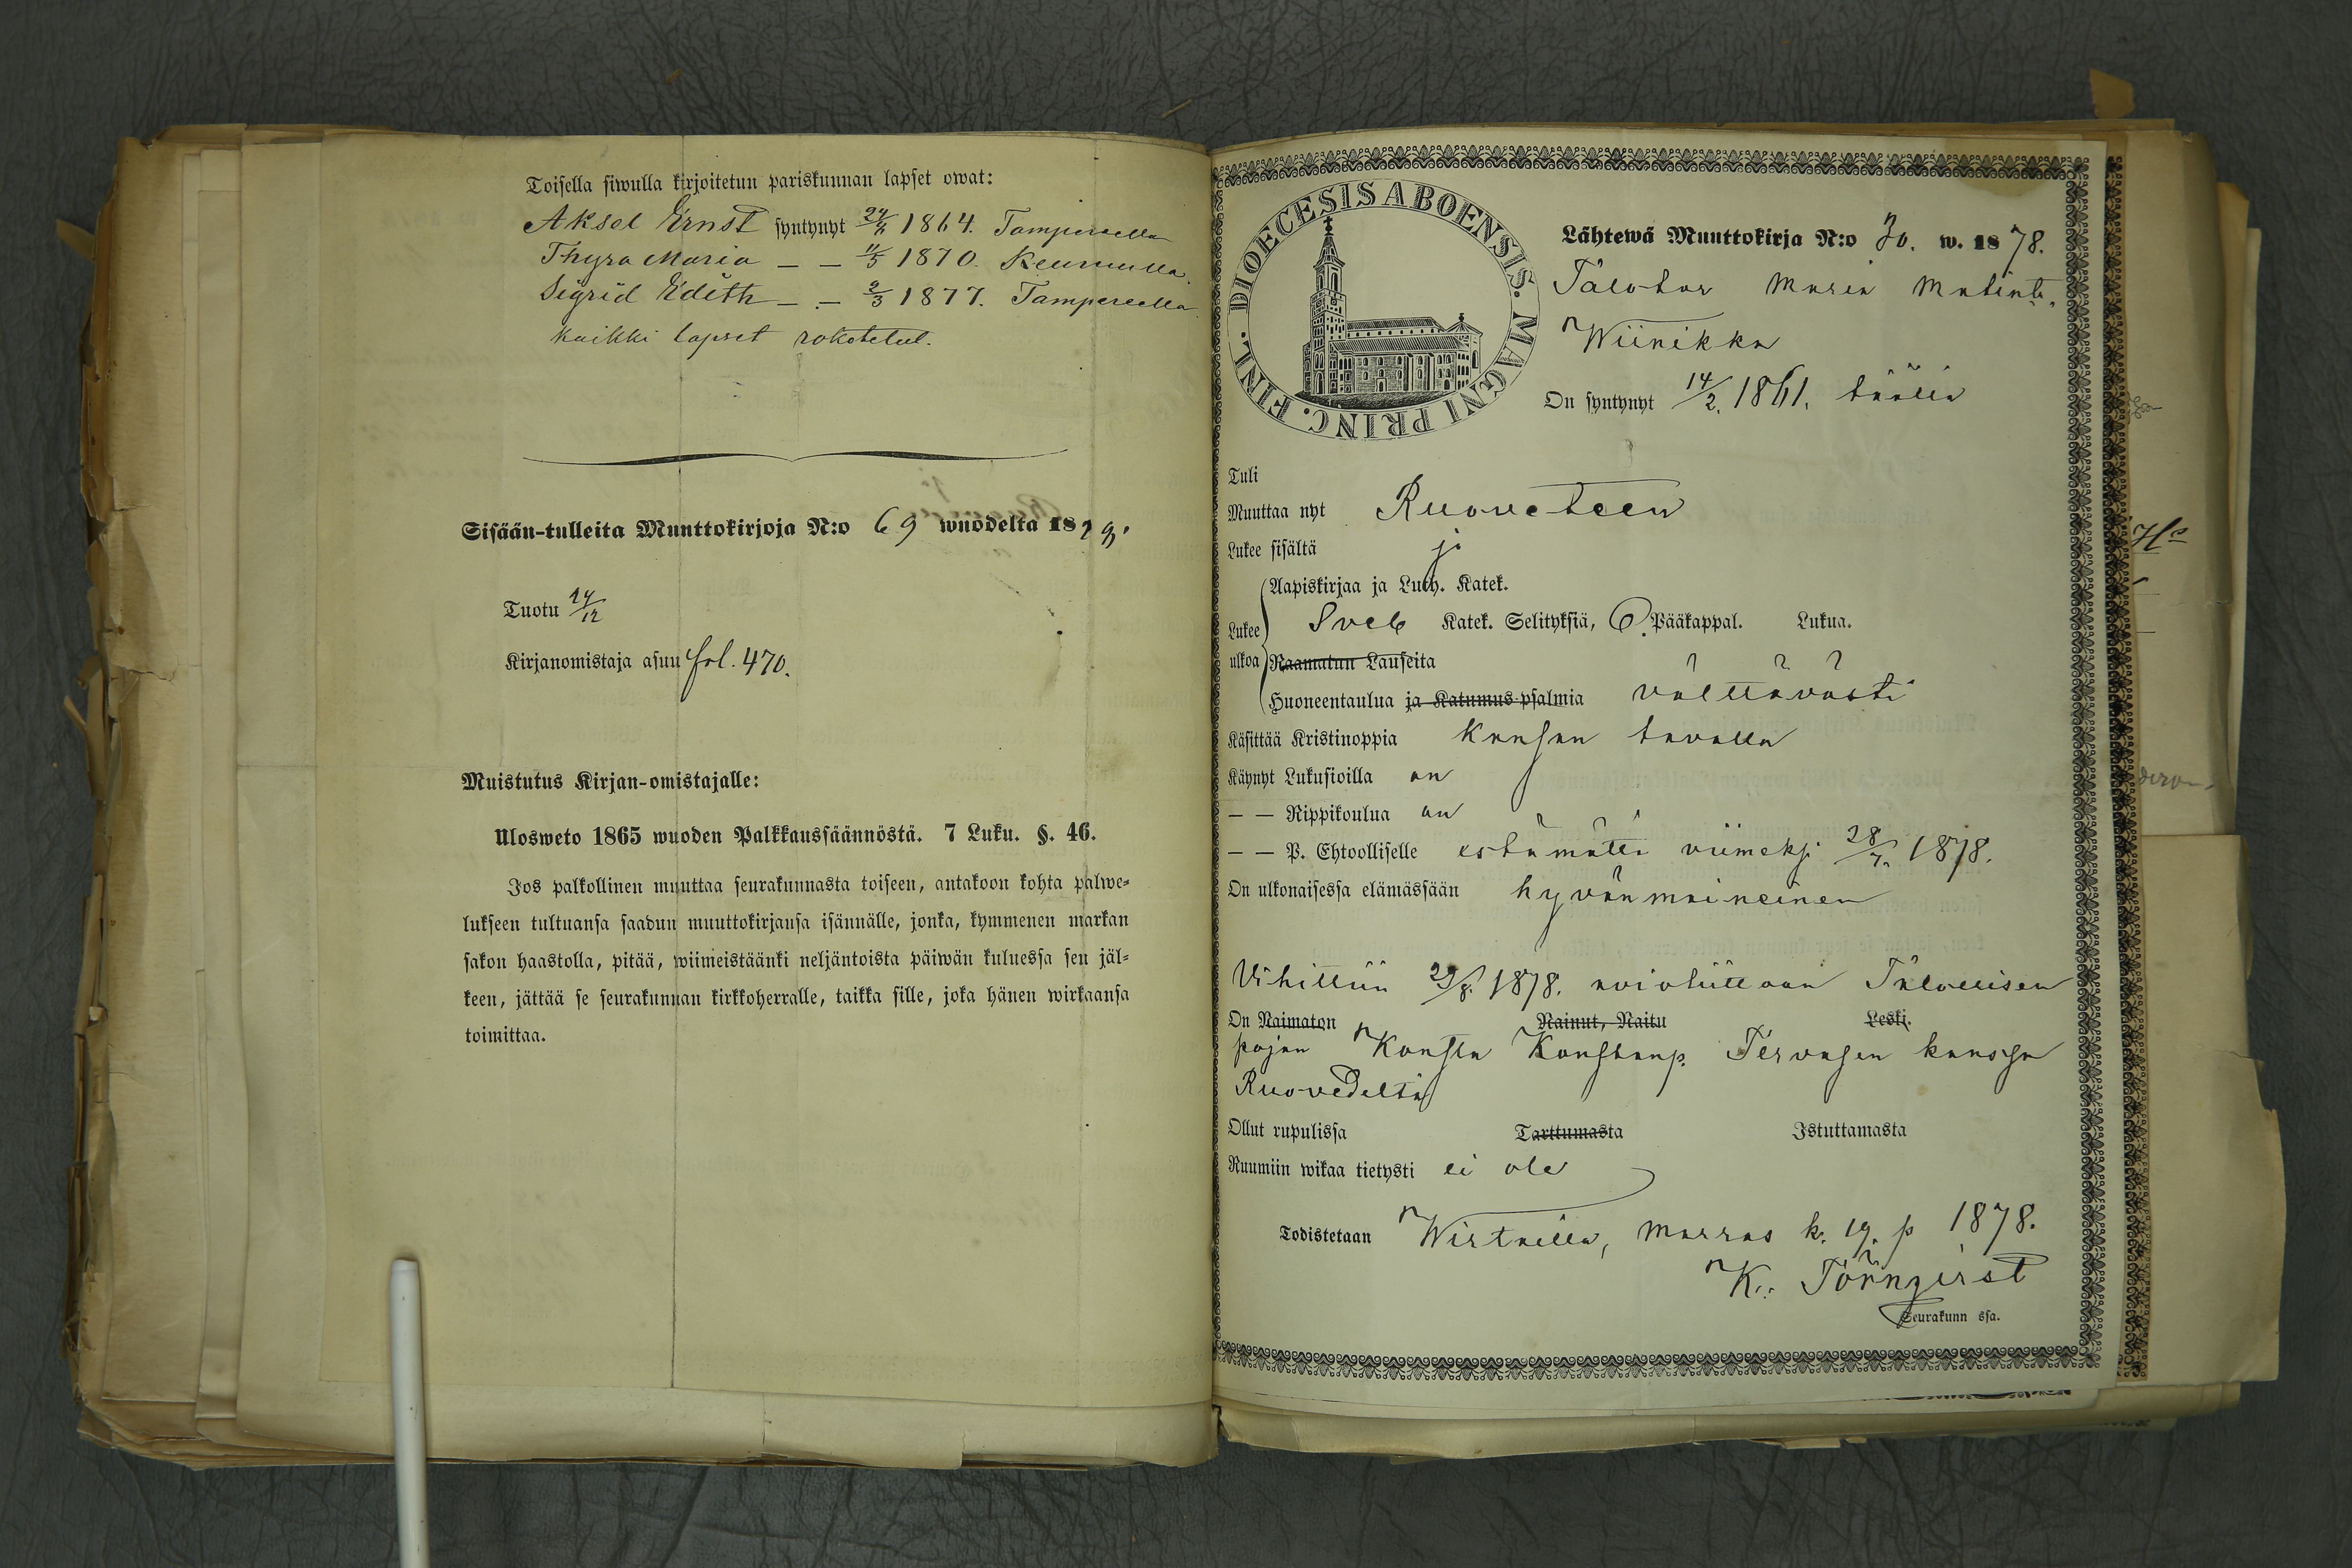 Toisella siwulla kirjoitetun pariskunnan lapset owat:
Aksel Ernst syntynyt 1864. Tampereella
Thyra Maria — — 11/5 1870. Keuruulla
Sigrid Edith — — 2/3 1877. Tampereella
kaikki lapset rokotetut.
Sisään-tulleita Muuttokirjoja N:o 69 wuodelta 1879.
Tuotu 14/12
Kirjanomistaja asuu fol. 470.
Muistutus Kirjan-omistajalle:
Ulosweto 1865 wuoden Palkkaussäännöstä. 7 Luku. §. 46.
Jos palkollinen muuttaa seurakunnasta toiseen, antakoon kohta palwe-
lukseen tultuansa saadun muuttokirjansa isännälle, jonka, kymmenen markan
sakon haastolla, pitää, wiimeistäänki neljäntoista päiwän kuluessa sen jäl-
keen, jättää se seurakunnan kirkkoherralle, taikka sille, joka hänen wirkaansa
toimittaa.
DIOECESIS ABOENSIS. MAGNI PRINC. FINL.
Lähtewä Muuttokirja N:o 30. w. 1878.
Talotar Maria Matint.
Wiinikka
On syntynyt 14/2. 1861. täällä
Tuli
Muuttaa nyt Ruoveteen
Lukee sisältä
Aapiskirjaa ja Luth. Katek.
Lukee Sveb Katek. Selityksiä, 6. Pääkappal. Lukua.
ulkoa Raamatun Lauseita
Huoneentaulua ja Katumus-psalmia välttävästi
Käsittää Kristinoppia Kansan tavalla
Käynyt Lukusioilla on
— — Rippikoulua on
— — P. Ehtoolliselle estämättä viimeksi 28/7. 1878.
On ulkonaisessa elämässään hyvänmaineinen
Vihittiin 29/8. 1878. avioliittoon Talollisen
On Naimaton Nainut, Naitu Leski.
pojan Konsta Konstanp. Tervasen kanssa
Ruovedeltä
Ollut rupulissa Tarttumasta Istuttamasta
Ruumiin wikaa tietysti ei ole
Todistetaan Wirtailla, Marras k. 19. p 1878.
K. Törnqvist
Seurakunn ssa.